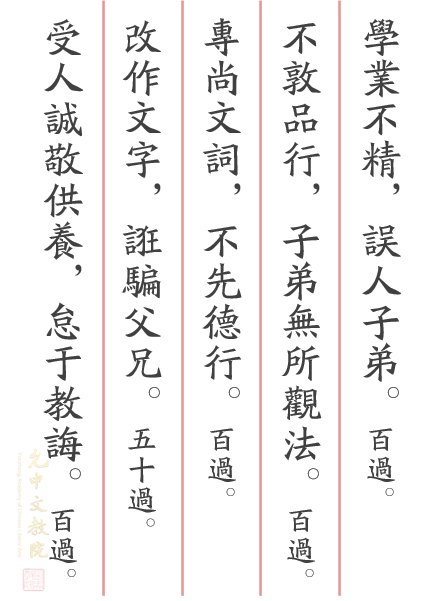 學業不精，誤人子弟。百過。
不敦品行，子弟無所觀法。百過。
專尚文詞，不先德行。百過。
改作文字，誑騙父兄。五十過。
受人誠敬供養，怠于教誨。百過。
允中文教院